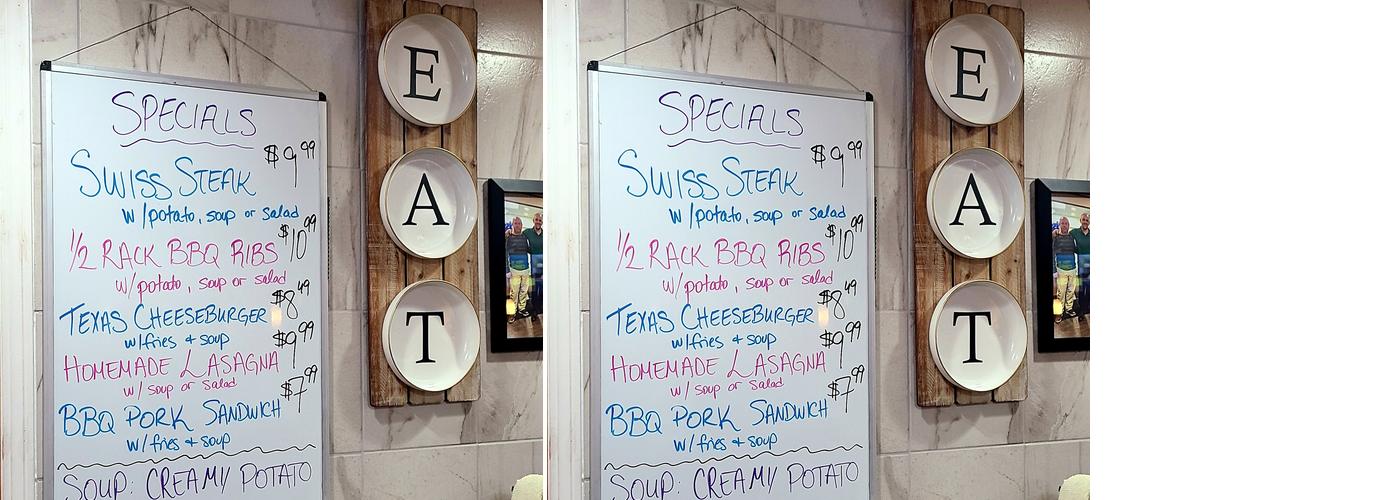 SPECIALS
$9.99
SWISS STEAK
w/potato, soup or salad
$10.99
1/2 RACK BBQ RIBS
w/potato, soup or salad
$8.49
TEXAS CHEESEBURGER
w/fries & soup
$9.99
HOMEMADE LASAGNA
w/ soup or salad
$7.99
BBQ PORK SANDWICH
w/fries & soup
SOUP: CREAMY POTATO
E
A
T
SPECIALS
$9.99
SWISS STEAK
w/potato, soup or salad
$10.99
1/2 RACK BBQ RIBS
w/potato, soup or salad
$8.49
TEXAS CHEESEBURGER
w/fries & soup
$9.99
HOMEMADE LASAGNA
w/ soup or salad
$7.99
BBQ PORK SANDWICH
w/fries & soup
SOUP: CREAMY POTATO
E
A
T